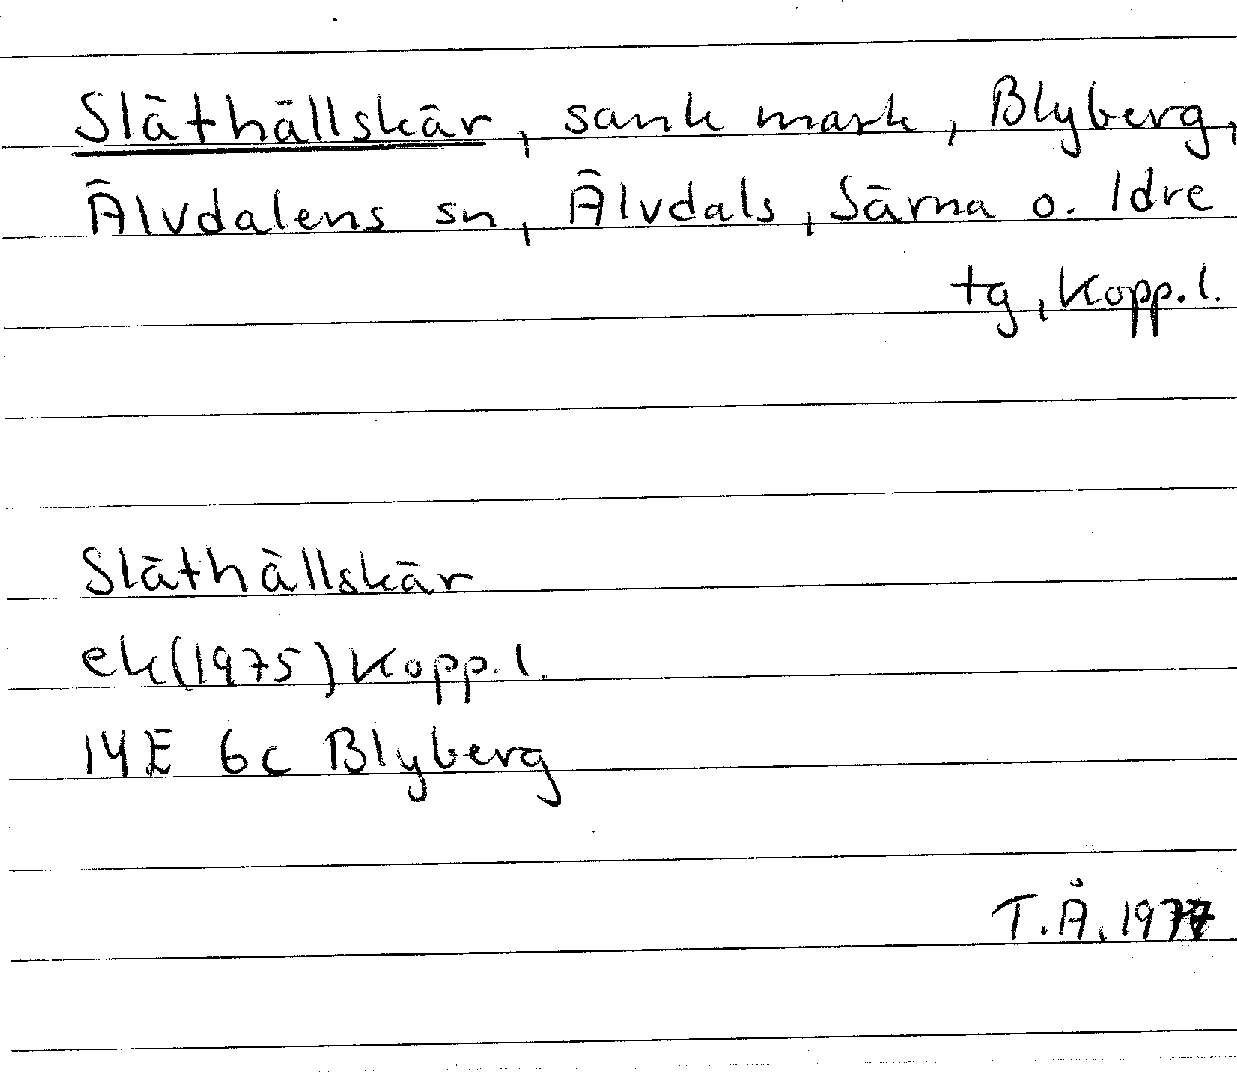 Släthällskär, sank mark, Blyberg,
Älvdalens sn, Älvdals, Särna o. Idre
tg, Kopp.l.
Släthällskär
ek(1975) Kopp.l.
14E 6c Blyberg
T.Å. 1977